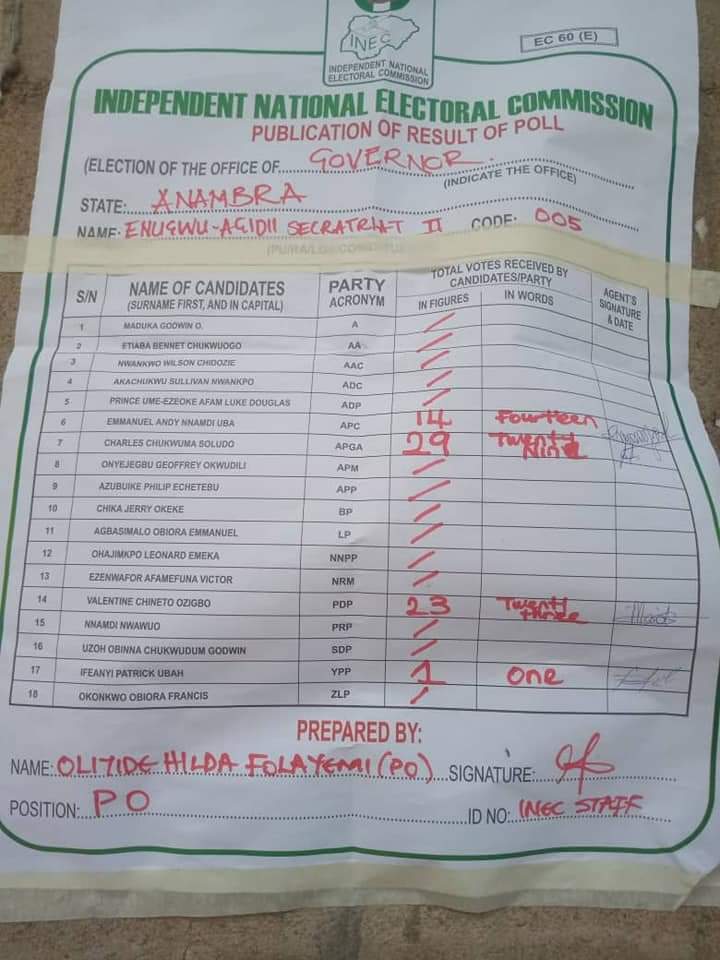 INEC
INDEPENDENT NATIONAL
ELECTORAL COMMISSION
EC 60 (E)
INDEPENDENT NATIONAL ELECTORAL COMMISSION
PUBLICATION OF RESULT OF POLL
(ELECTION OF THE OFFICE OF GOVERNOR
(INDICATE THE OFFICE)
STATE: ANAMBRA
NAME: ENUGWU-AGIDII SECRATRIAT II CODE: 005
S/N NAME OF CANDIDATES (SURNAME FIRST, AND IN CAPITAL) PARTY ACRONYM TOTAL VOTES RECEIVED BY CANDIDATES/PARTY IN FIGURES IN WORDS AGENT'S SIGNATURE & DATE
1 MADUKA GODWIN O. A /
2 ETIABA BENNET CHUKWUOGO AA /
3 NWANKWO WILSON CHIDOZIE AAC /
4 AKACHUKWU SULLIVAN NWANKPO ADC /
5 PRINCE UME-EZEOKE AFAM LUKE DOUGLAS ADP /
6 EMMANUEL ANDY NNAMDI UBA APC 14 Fourteen
7 CHARLES CHUKWUMA SOLUDO APGA 29 Twenty Nine
8 ONYEJEGBU GEOFFREY OKWUDILI APM /
9 AZUBUIKE PHILIP ECHETEBU APP /
10 CHIKA JERRY OKEKE BP /
11 AGBASIMALO OBIORA EMMANUEL LP /
12 OHAJIMKPO LEONARD EMEKA NNPP /
13 EZENWAFOR AFAMEFUNA VICTOR NRM /
14 VALENTINE CHINETO OZIGBO PDP 23 Twenty three
15 NNAMDI NWAWUO PRP /
16 UZOH OBINNA CHUKWUDUM GODWIN SDP /
17 IFEANYI PATRICK UBAH YPP 1 One
18 OKONKWO OBIORA FRANCIS ZLP /
PREPARED BY:
NAME: OLIJIDE HILDA FOLAYEMI (PO) SIGNATURE:
POSITION: PO ID NO: INEC STAFF